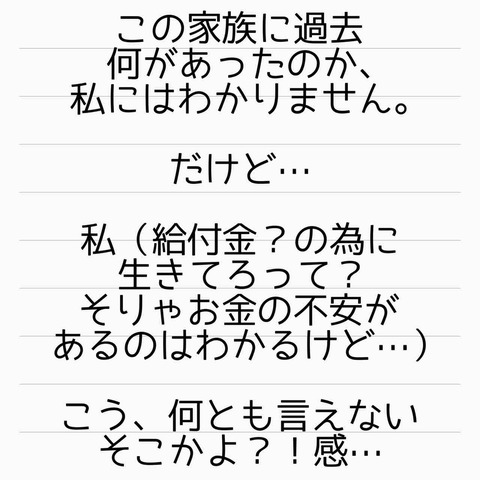 この家族に過去
何があったのか、
私にはわかりません。
だけど…
私（給付金？の為に
生きてろって？
そりゃお金の不安が
あるのはわかるけど…）
こう、何とも言えない
そこかよ？！感…